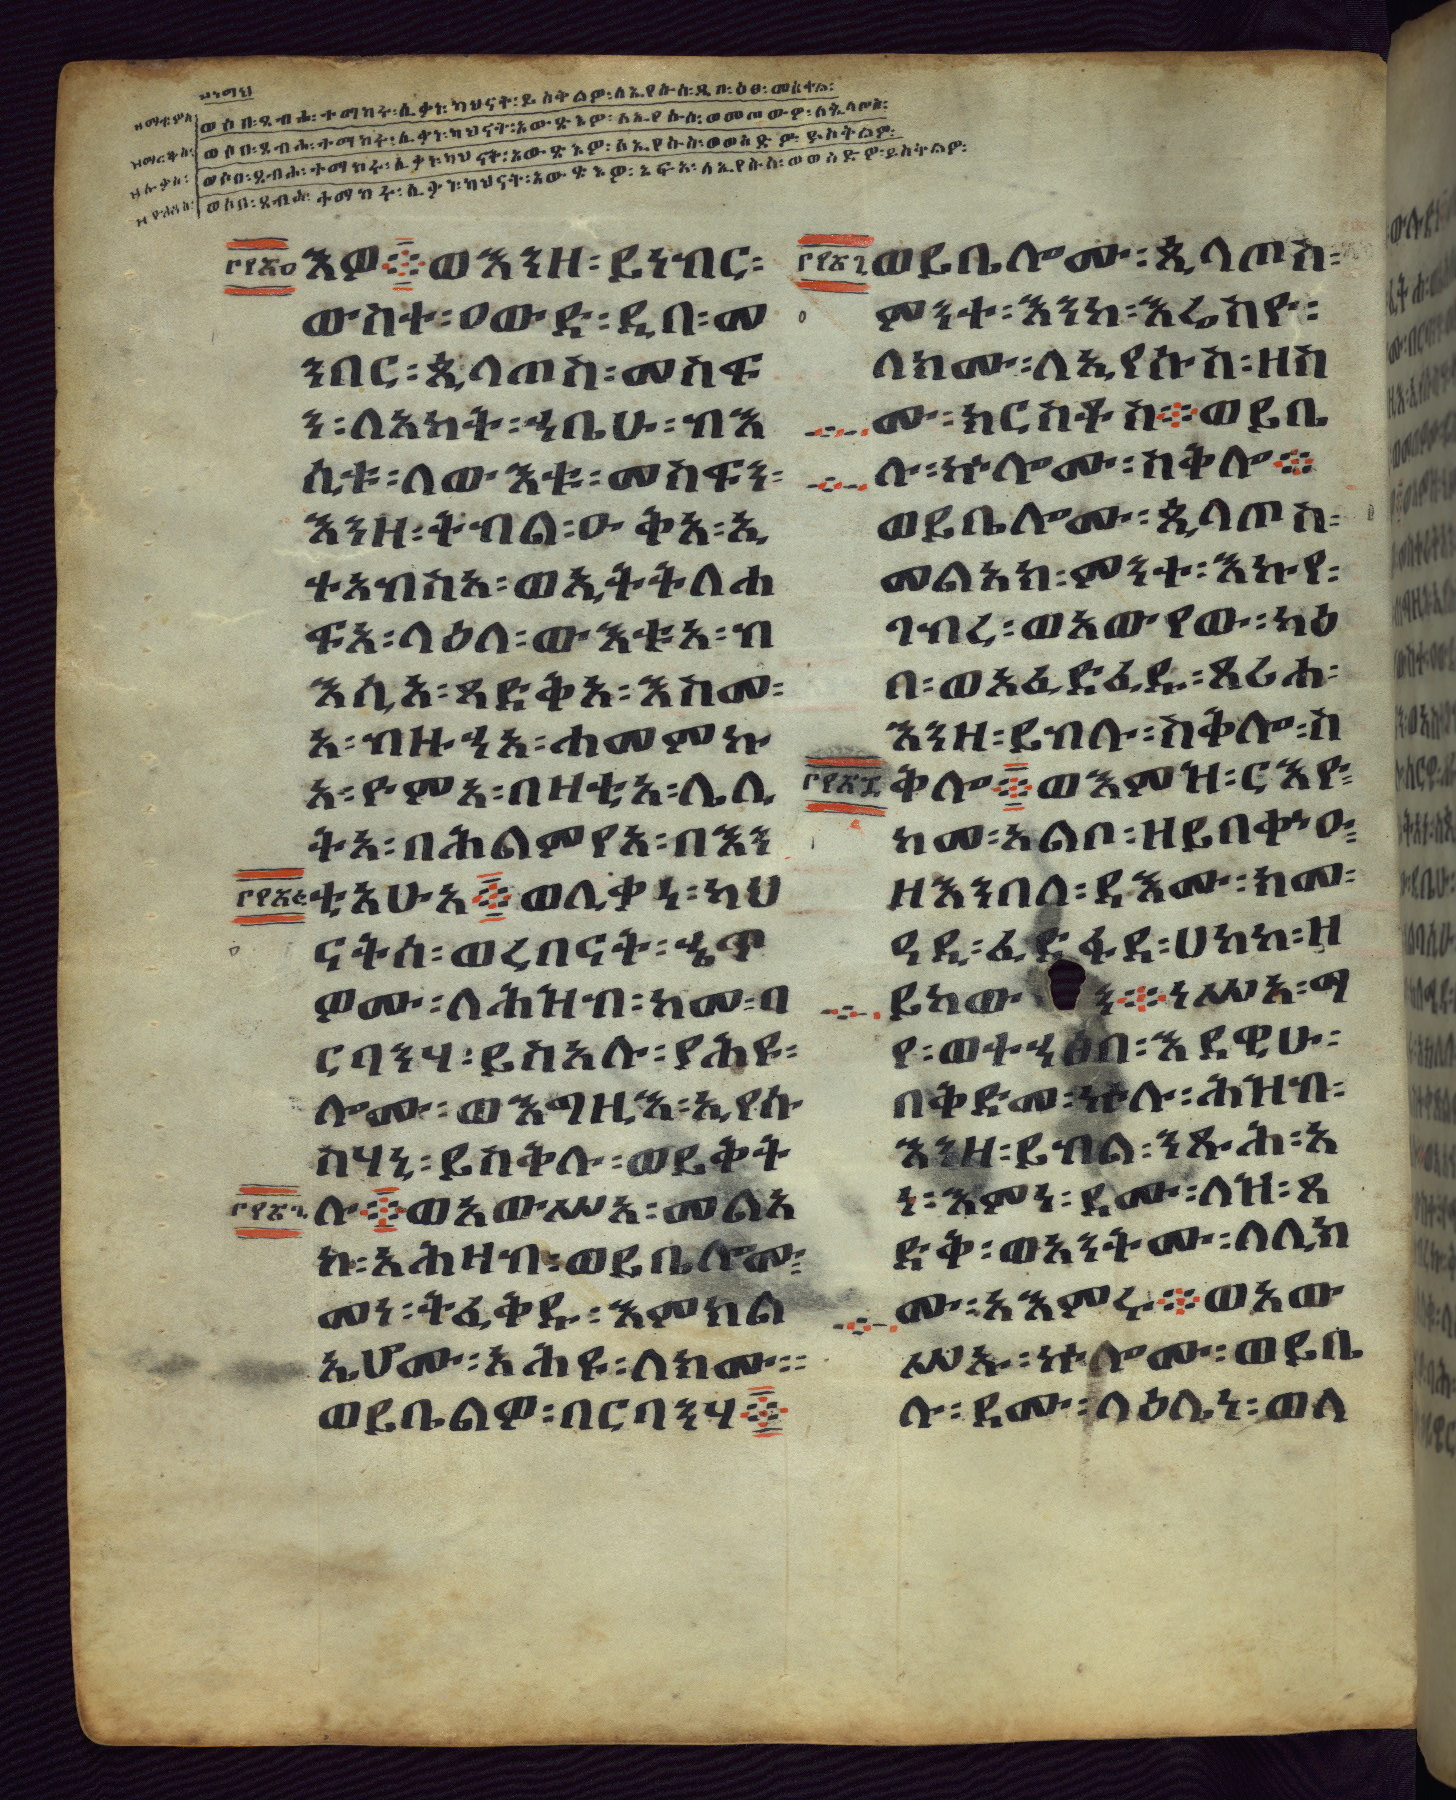 ዝነግህ
ዘማቴዎስ
ወሶበ፡ጸብሐ፡ተማከሩ፡ሊቃነ፡ካህናት፡
ዘማርቆስ፡
ወሶበ፡ጸብሐ፡ተማከሩ፡ሊቃነ፡ካህናት፡
ዘሉቃስ፡
ወሶበ፡ጸብሐ፡ተማከሩ፡ሊቃነ፡ካህናት፡
ዘዮሐንስ፡
ወሶበ፡ጸብሐ፡ተማከሩ፡ሊቃነ፡ካህናት፡
እዎ፨ወእንዘ፡ይነብር፡
ውስተ፡ዐውድ፡ዲበ፡መ
ንበር፡ጲላጦስ፡መስፍ
ን፡ለአከት፡ኀቤሁ፡ብእ
ሲቱ፡ለውእቱ፡መስፍን፡
እንዘ፡ትብል፡ዑቅአ፡ኢ
ተአብስአ፡ወኢትትለሐ
ፍአ፡ላዕለ፡ውእቱአ፡ብ
እሲአ፡ጻድቅአ፡እስመ፡
አ፡ብዙኀአ፡ሐመምኩ
አ፡ዮምአ፡በዛቲአ፡ሌሊ
ትአ፡በሕልምየአ፡በእን
ቲአሁአ፨ወሊቃነ፡ካህ
ናትሰ፡ወረበናት፡ኄጥ
ዎሙ፡ለሕዝብ፡ከመ፡በ
ርባንሃ፡ይስአሉ፡ያሕዩ፡
ሎሙ፡ወእግዚእ፡ኢየሱ
ስሃኒ፡ይስቅሉ፡ወይቅት
ሉ፨ወአውሥአ፡መልአ
ክ፡አሕዛብ፡ወይቤሎሙ፡
መነ፡ትፈቅዱ፡እምክል
ኤሆሙ፡አሕዩ፡ለክሙ፡፡
ወይቤልዎ፡በርባንሃ፨
ወይቤሎሙ፡ጲላጦስ፡
ምንተ፡እንከ፡እሬስዮ፡
ላክሙ፡ለኢየሱስ፡ዘስ
ሙ፡ክርስቶስ፨ወይቤ
ሉ፡ኵሎሙ፡ስቅሎ፨
ወይቤሎሙ፡ጲላጦስ፡
መልአክ፡ምንተ፡እኩየ፡
ገብረ፡ወአውየው፡ካዕ
በ፡ወአፈድፈዱ፡ጸሪሐ፡
እንዘ፡ይብሉ፡ስቅሎ፡ስ
ቅሎ፨ወእምዝ፡ርእዮ፡
ከመ፡አልቦ፡ዘይበቍዐ፡
ዘእንበለ፡ዳእሙ፡ከመ፡
ዳዲ፡ፈድፋደ፡ሀከክ፡ዘ
ይከውን፨ነሥአ፡ማ
የ፡ወተኀፅበ፡እደዊሁ፡
በቅድመ፡ኵሉ፡ሕዝብ፡
እንዘ፡ይብል፡ንጹሕ፡አ
ነ፡እምነ፡ደሙ፡ለዝ፡ጻ
ድቅ፡ወአንትሙ፡ለሊክ
ሙ፡አእምሩ፨ወአው
ሥኡ፡ኵሎሙ፡ወይቤ
ሉ፡ደሙ፡ላዕሌነ፡ወላ